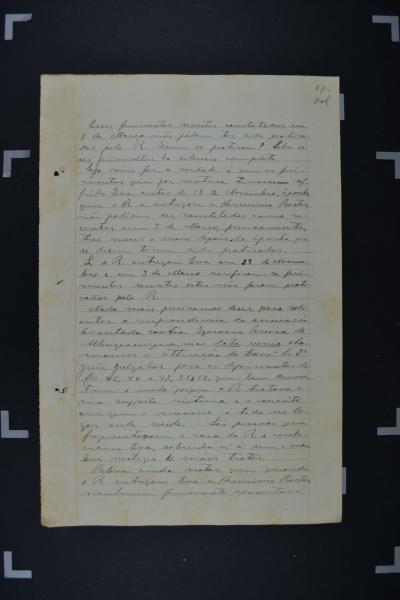 87
Esses ferimentos recentes constatados em
3 de Março não podem ter sido pratica
dos pelo R. Quem os praticou? Sobre is
so, silencio completo.
Seja como for, a verdade é que os feri
mentos que por ventura tivesse sof
frido Eva antes de 19 de Novembro, epocha
que o R. a entregou a Herminio Bastos
não podiam ser constatados como re
centes em 3 de Março, precisamente
tres meses e meio depois da epocha que
se dizem terem sido praticados.
E o R. entregou Eva em 19 de Novem
bro e em 3 de Março verificam-se feri
mentos recentes estes não foram prati
cados pelo R.
Nada mais precisamos dizer para sali
entar a improcedencia da accusação
levantada contra Ignacio
Albuquerque, mas data venia cha
mamos a attenção do Exmo. Sr. Dr.
Juiz julgador para os depoimentos de
fls 45, 46 e 48, que bem demons
tram o modo porque o R. tratava a
sua supposta victima e o conceito
em que o mesmo é tido no lo
gar onde reside. São pessoas que
frequentavam a casa do R. e conhe
ciam Eva,
leve vestigio de máos tratos.
Releva ainda notar que quando
o R. entregou Eva a Herminio Bastos
nenhum ferimento apresentava